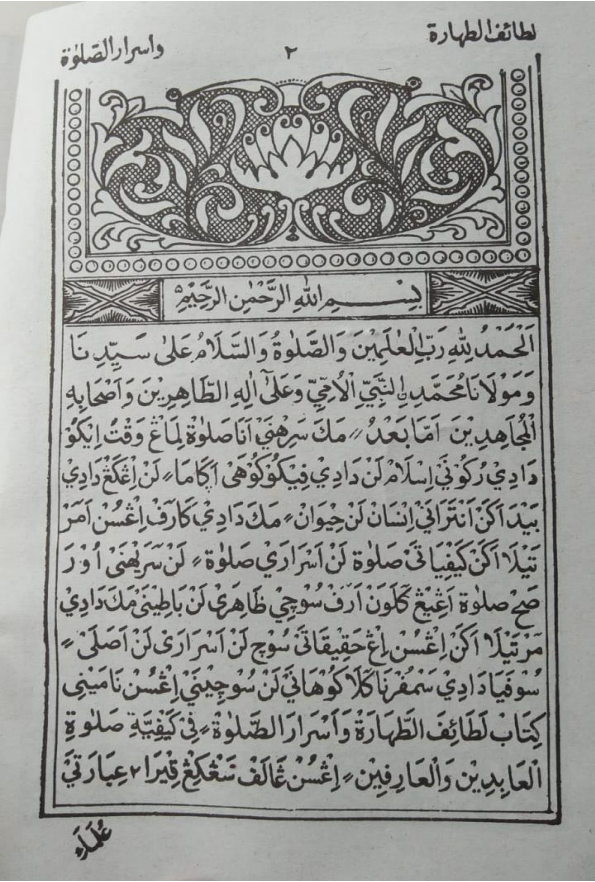 لطائف الطهارة
٢
واسرار الصلوة
بِسْمِ اللهِ الرَّحْمٰنِ الرَّحِيْمِ
اَلْحَمْدُ لِلّٰهِ رَبِّ الْعٰلَمِيْنَ وَالصَّلٰوةُ وَالسَّلَامُ عَلٰى سَيِّدِ نَا
وَمَوْلَانَا مُحَمَّدِ ࣙالنَّبِيِّ الْاُمِّيِّ وَعَلٰى اٰلِهِ الطَّاهِرِيْنَ وَاَصْحَابِهِ
الْمُجَاهِدِيْنَ اَمَّا بَعْدُ // مَكَ سَرْهَنَيْ اَنَا صَلَوٰة لِمَاڠْ وَقْتُ اِيْكُوْ
دَادِيْ رُكُوْنَيْ اِسْلَامْ لَنْ دَادِيْ فِيْكُوْكُوْهَىْ اَڮَامَا // لَنْ اِڠْكَڠْ دَادِيْ
بَيْدَ اَكَنْ اَنْتَرَانَيْ اِنْسَانْ لَنْ حَيَوَانْ // مَكَ دَادِيْ كَارَڤْ اِڠْسُنْ اَمَرْ
تَيْلَا اَكَنْ كَيْفِيَاتَىْ صَلَوٰة لَنْ اَسْرَارَيْ صَلَوٰة // لَنْ سَرَيْهَنَىْ اَوْرَ
صَحْ صَلَوٰة اَڠِيْڠْ كَلَوَنْ اَرَڤْ سُوْچِيْ ظَاهِرَىْ لَنْ بَاطِيْنَىْ مَكَ دَادِيْ
مَرْتَيْلَا اَكَنْ اِڠْسُنْ اِڠْ حَقِيْقَاتَىْ سُوْچِ لَنْ اَسْرَارَىْ لَنْ اَصْلَىْ //
سُوْفَيَا دَادِيْ سَمْفُرْنَا كَلَاكُوْهَانَىْ لَنْ سُوْچِيْنَىْ اِڠْسُنْ نَامَيْنِىْ
كِتَابْ لَطَائِفَ الطَّهَارَةْ وَاَسْرَارَ الصَّلٰوةْ // فِىْ كَيْفِيَّةِ صَلٰوةِ
الْعَابِدِيْنَ وَالْعَارِفِيْنَ // اِڠْسُنْ ڠَالَڤْ سَڠْكِڠْ ڤِيْرَا٢ عِبَارَتَيْ
عُلَمَاءْ